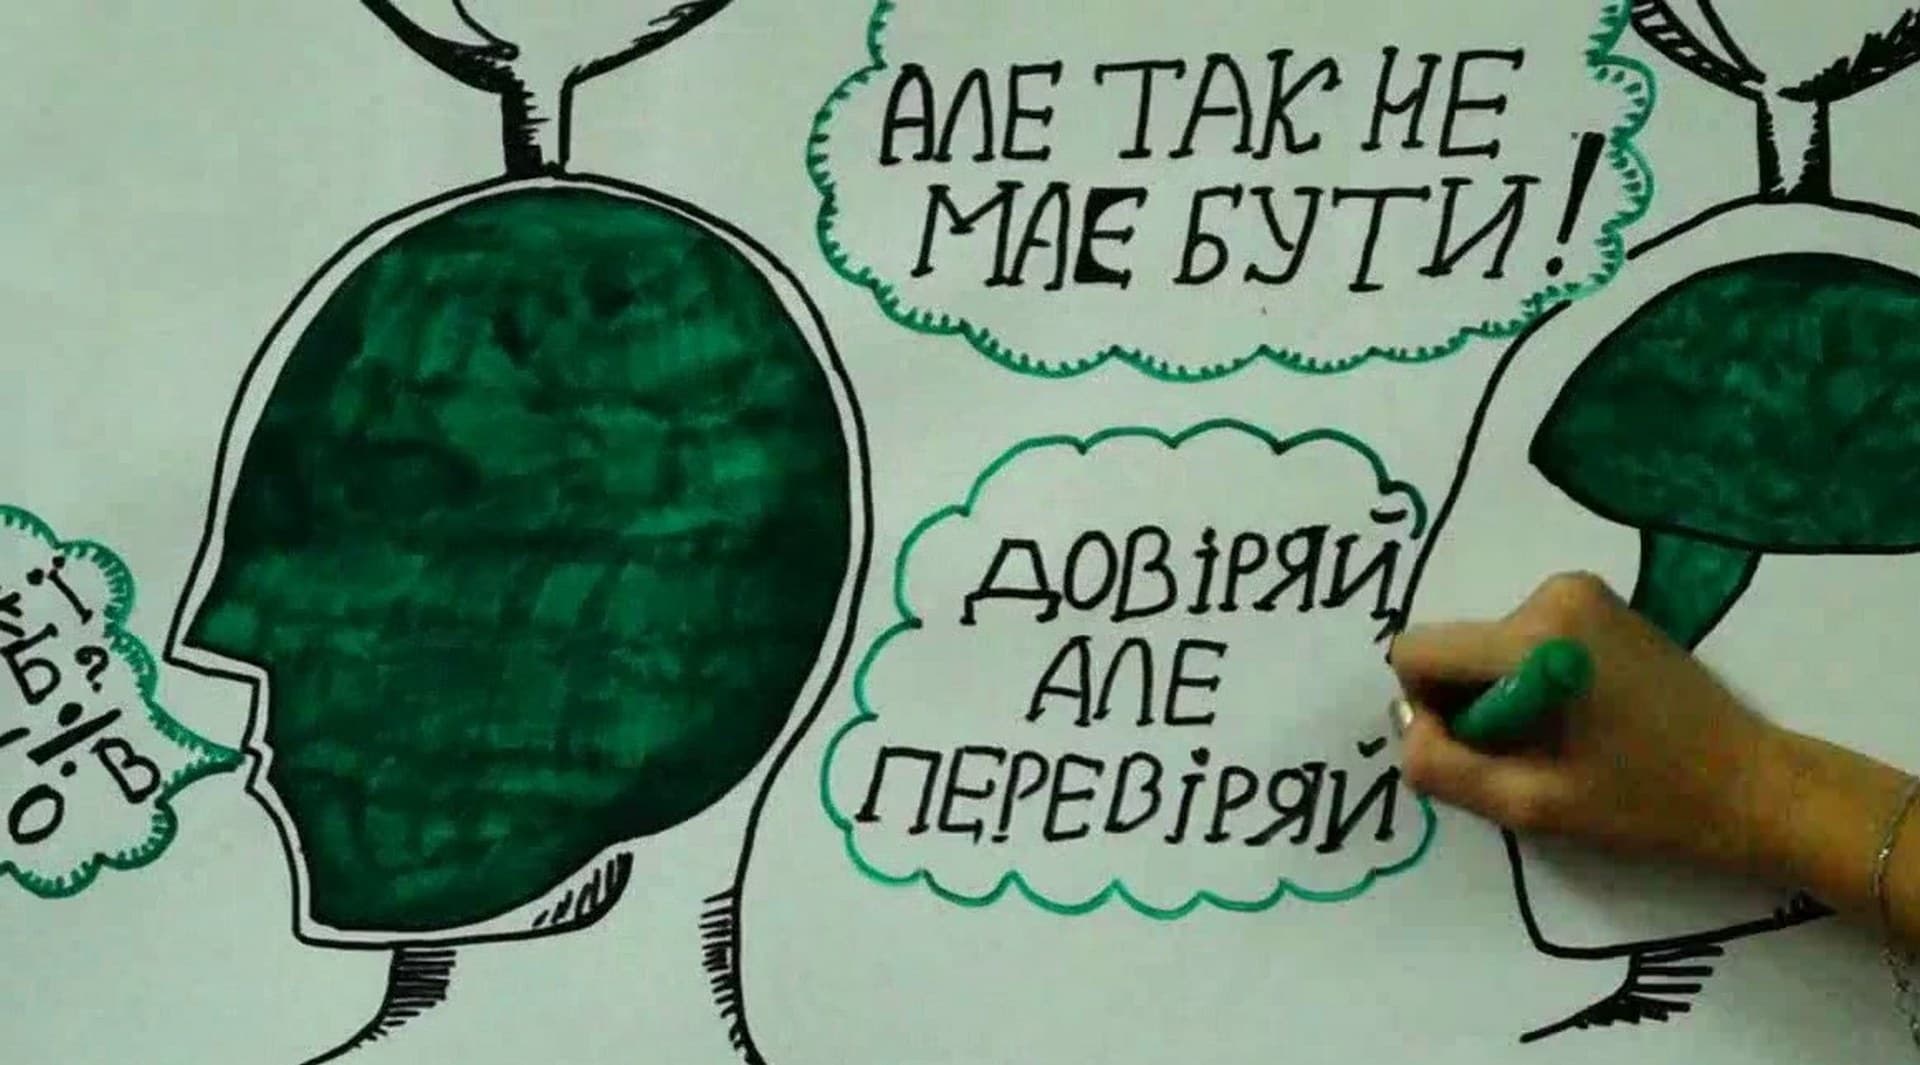 АЛЕ ТАК НЕ
МАЄ БУТИ!
ДОВІРЯЙ,
АЛЕ
ПЕРЕВІРЯЙ
Ї
Б ?
%
О В